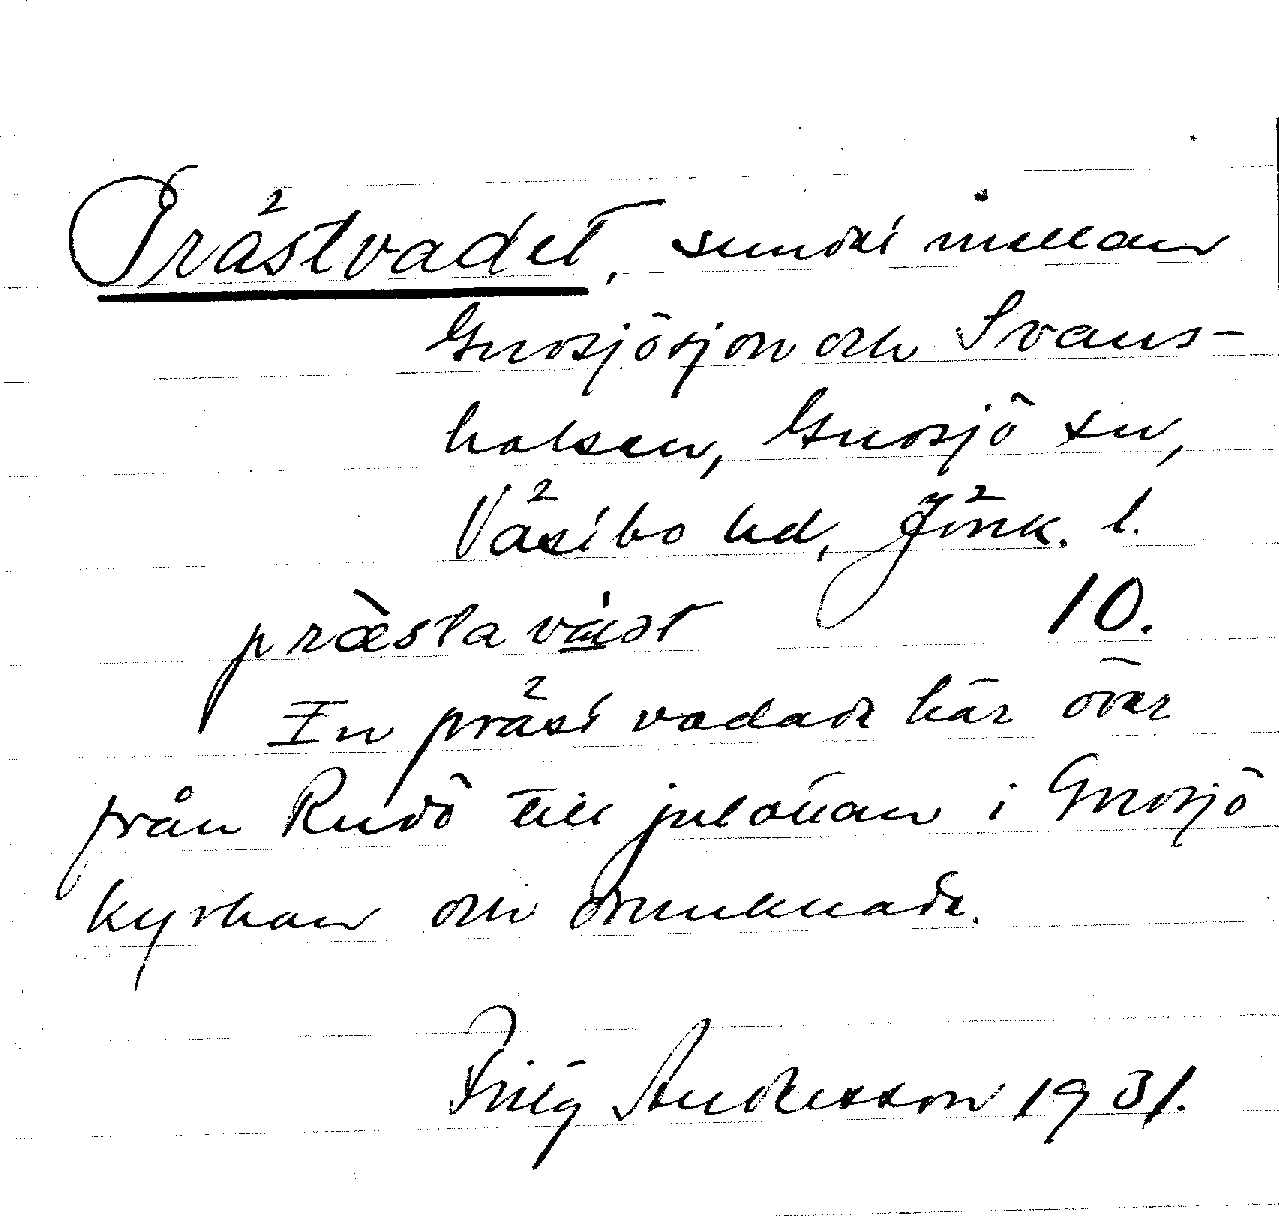 Prästvadet, sundet mellan
Gnosjösjön och Svans-
halsen, Gnosjö sn,
Västbo hd, Jönk. l.
præsta våɑt 10.
En präst vadade här över
från Rudö till julottan i Gnosjö
kyrkan och drunknade.
Fritz Andersson 1931.